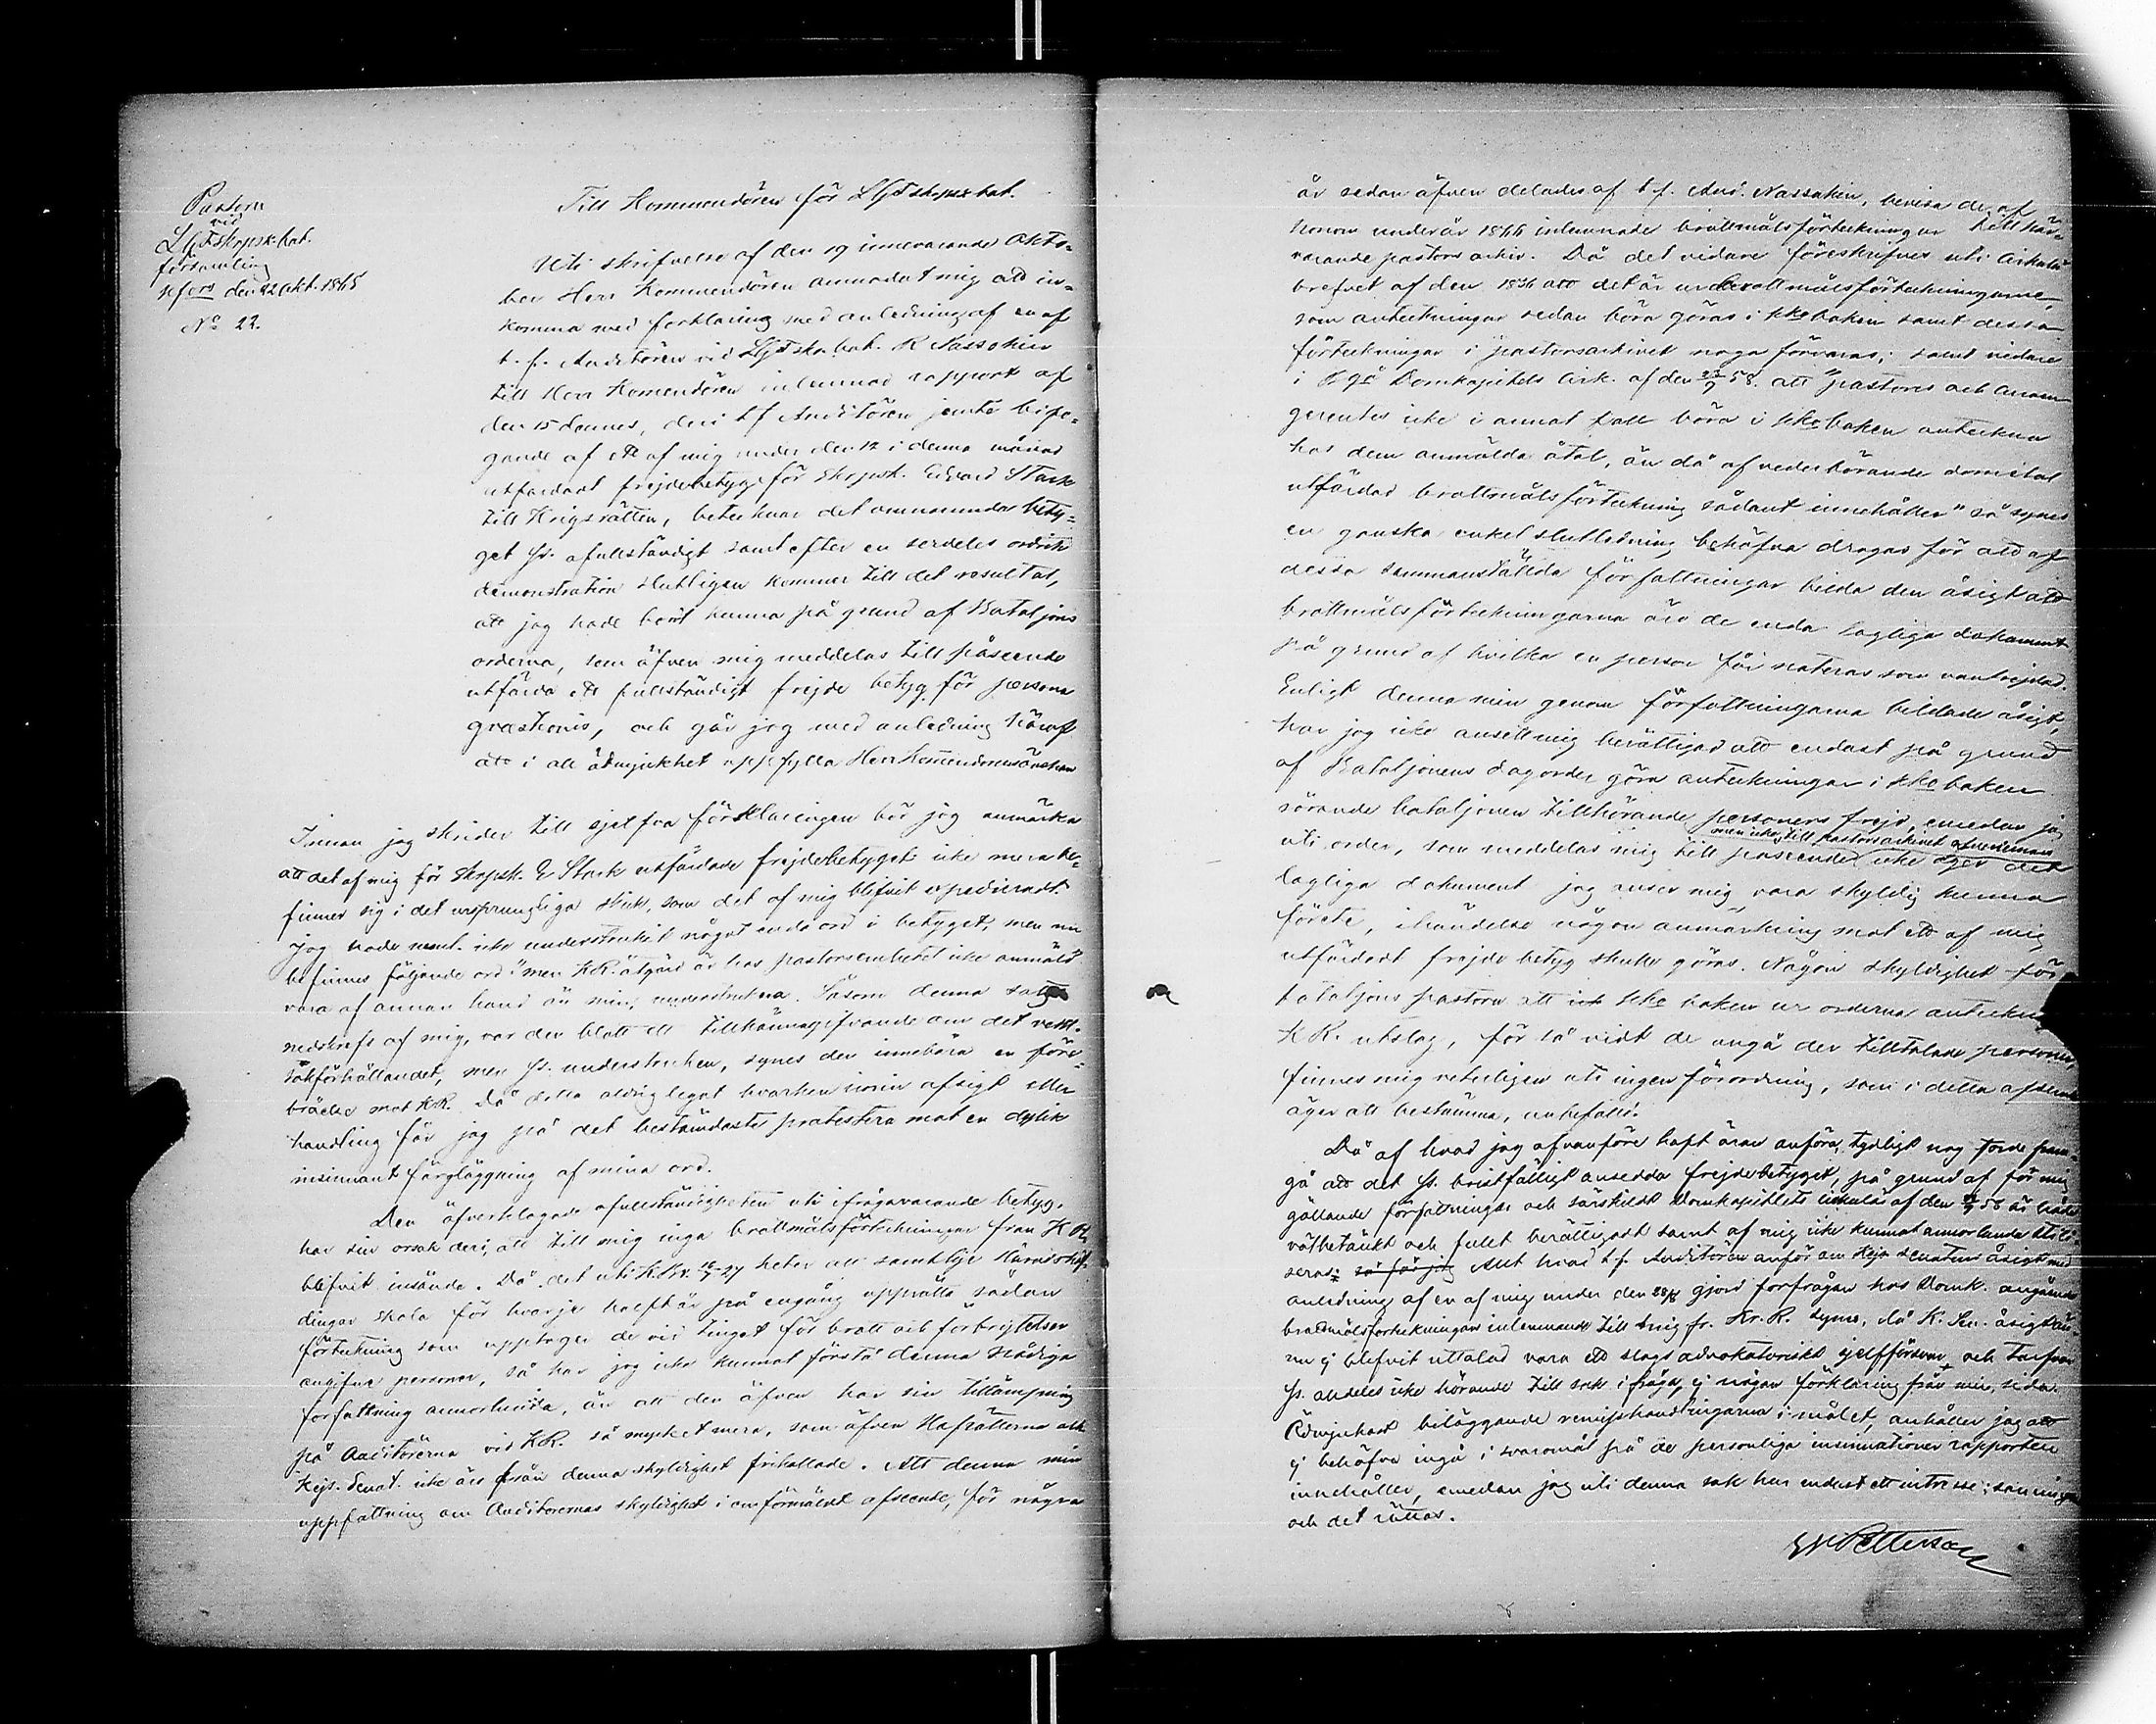 Pastorn
vid
LGFskrpsk.bat.
församling
Hfors den 22 Okt. 1865
No 22.
Till Kommendören för LGFskrpskbat.
Uti skrifvelse af den 19 innevarande Okto-
ber Herr Kommendören anmodat mig att in-
komma med förklaring med anledning af en af
t. f. Auditören vid LGFskr.bat. R Nassokin
till Herr Komendören inlemnad rapport af
den 15 dennes, deri t f Auditören jemte bifo-
gande af ett af mig under den 12 i denna månad
utfärdadt frejdebetyg för Skrpsk. Edvard Stark
till Krigsrätten, betecknar det omnämnda bety-
get ss. ofullständigt samt efter en serdeles
demonstration slutligen kommer till det resultat,
att jag hade bordt kunna på grund af Bataljons
orderna, som äfven mig meddelas till påseende
utfärda ett fullständigt frejde betyg för persona
quæstionis, och går jag med anledning häraf
att i all ödmjukhet uppfylla Herr Komendörens önskan
Innan jag skrider till sjelfva förklaringen bör jag anmärka
att det af mig för Skrpsk. E Stark utfärdade frejdebetyget icke mera be-
finner sig i det ursprungliga skick, som det af mig blifvit expedieradt.
Jag hade neml. icke understrukit något enda ord i betyget, men nu
befinnes följande ord "men KR. åtgärd är hos pastorsembetet icke anmäld
vara af annan hand än min, understrukna. Såsom denna sats
nedskrefs af mig, var den blott ett tillkännagifvande om det verkl.
sakförhållandet, men ss. understruken, synes den innebära en före-
bråelse mot KR. Då detta aldrig legat hvarken i min afsigt eller
handling får jag på det bestämdaste protestera mot en dylik
insinuant färgläggning af mina ord.
Den öfverklagade ofullständigheten uti ifrågavarande betyg,
har sin orsak deri, att till mig inga brottmålsförteckningar från KR
blifvit insände. Då det uti K.Br. 27 heter att samtlige Häradshöf-
dingar skola för hvarje halft år på engång upprätta sådan
förteckning som upptager de vid tinget för brott och förbrytelser
angifne personer, så har jag icke kunnat förstå denna Nådiga
författning annorlunda, än att den äfven har sin tillämpning
på Auditörerna vid KR. så mycket mera, som äfven Hofrätterna och
Kejs. Senat. icke äro från denna skyldighet frikallade. Att denna min
uppfattning om Auditörernas skyldighet i omförmäldt afseende, för några
år sedan äfven delades af t. f. Aud. Nassokin, bevisa de af
honom under år 1864 inlemnade brottmålsförteckningar till här-
varande pastors arkiv. Då det vidare föreskrifves uti Cirkulär
brefvet af den 1836 att det är ur brottmålsförteckningarne,
som anteckningar sedan böra göras i kkoboken samt dessa
förteckningar i pastorsarkivet noga förvaras; samt vidare
i Bgå Domkapitels Cirk. af den 58. att "pastores och
gerentes icke i annat fall böra i kkoboken anteckna
hos dem anmälda åtal, än då af vederbörande domstol
utfärdad brottmålsförteckning sådant innehåller" så synes
en ganska enkel slutledning behöfva dragas för att af
dessa sammanställda författningar bilda den åsigt att
brottmålsförteckningarna äro de enda lagliga dokument
på grund af hvilka en person får noteras som vanfrejdad.
Enligt denna min genom författningarna bildade åsigt,
har jag icke ansett mig berättigad att endast på grund
af Bataljonens dagorder göra anteckningar i kkoboken
rörande bataljonen tillhörande personers frejd, emedan jag
men icke till pastorsarkivet
uti order, som meddelas mig till påseende icke eger det
lagliga dokument jag anser mig vara skyldig kunna
förete, i händelse någon anmärkning mot ett af mig
utfärdadt frejde betyg skulle göras. Någon skyldighet för
bataljons pastorn att i kko boken ur orderna anteckna
K R. utslag, för så vidt de angå der tilltalade personer,
finnes mig veterligen uti ingen förordning, som i detta afseende
äger att bestämma, anbefalld.
Då af hvad jag ofvanföre haft äran anföra, tydligt nog torde fram-
gå att det ss. bristfälligt ansedda frejdebetyget, på grund af för mig
gällande författningar och särskildt Domkapitlets cirkulär af den 58 är både
välbetänkt och fullt berättigadt samt af mig icke kunnat annorlunda
seras: så får jag Allt hvad t. f. Auditören anför om Kejs Senatens åsigt med
anledning af en af mig under den 28/8 gjord förfrågan hos Domk. angående
brottmålsförteckningars inlemnande till mig fr. Kr.R. synes, då K. Sen. åsigt än-
nu ej blifvit uttalad vara ett slags advokatoriskt sjelfförsvar och torfvar
ss. alldeles icke hörande till sak i fråga, ej någon förklaring från min sida.
Ödmjukast biläggande remisshandlingarna i målet, anhåller jag att
ej behöfva ingå i svaromål på de personliga insinuationer rapporten
innehåller, emedan jag uti denna sak har endast ett intresse: sanningens
och det rättas.
Petterson